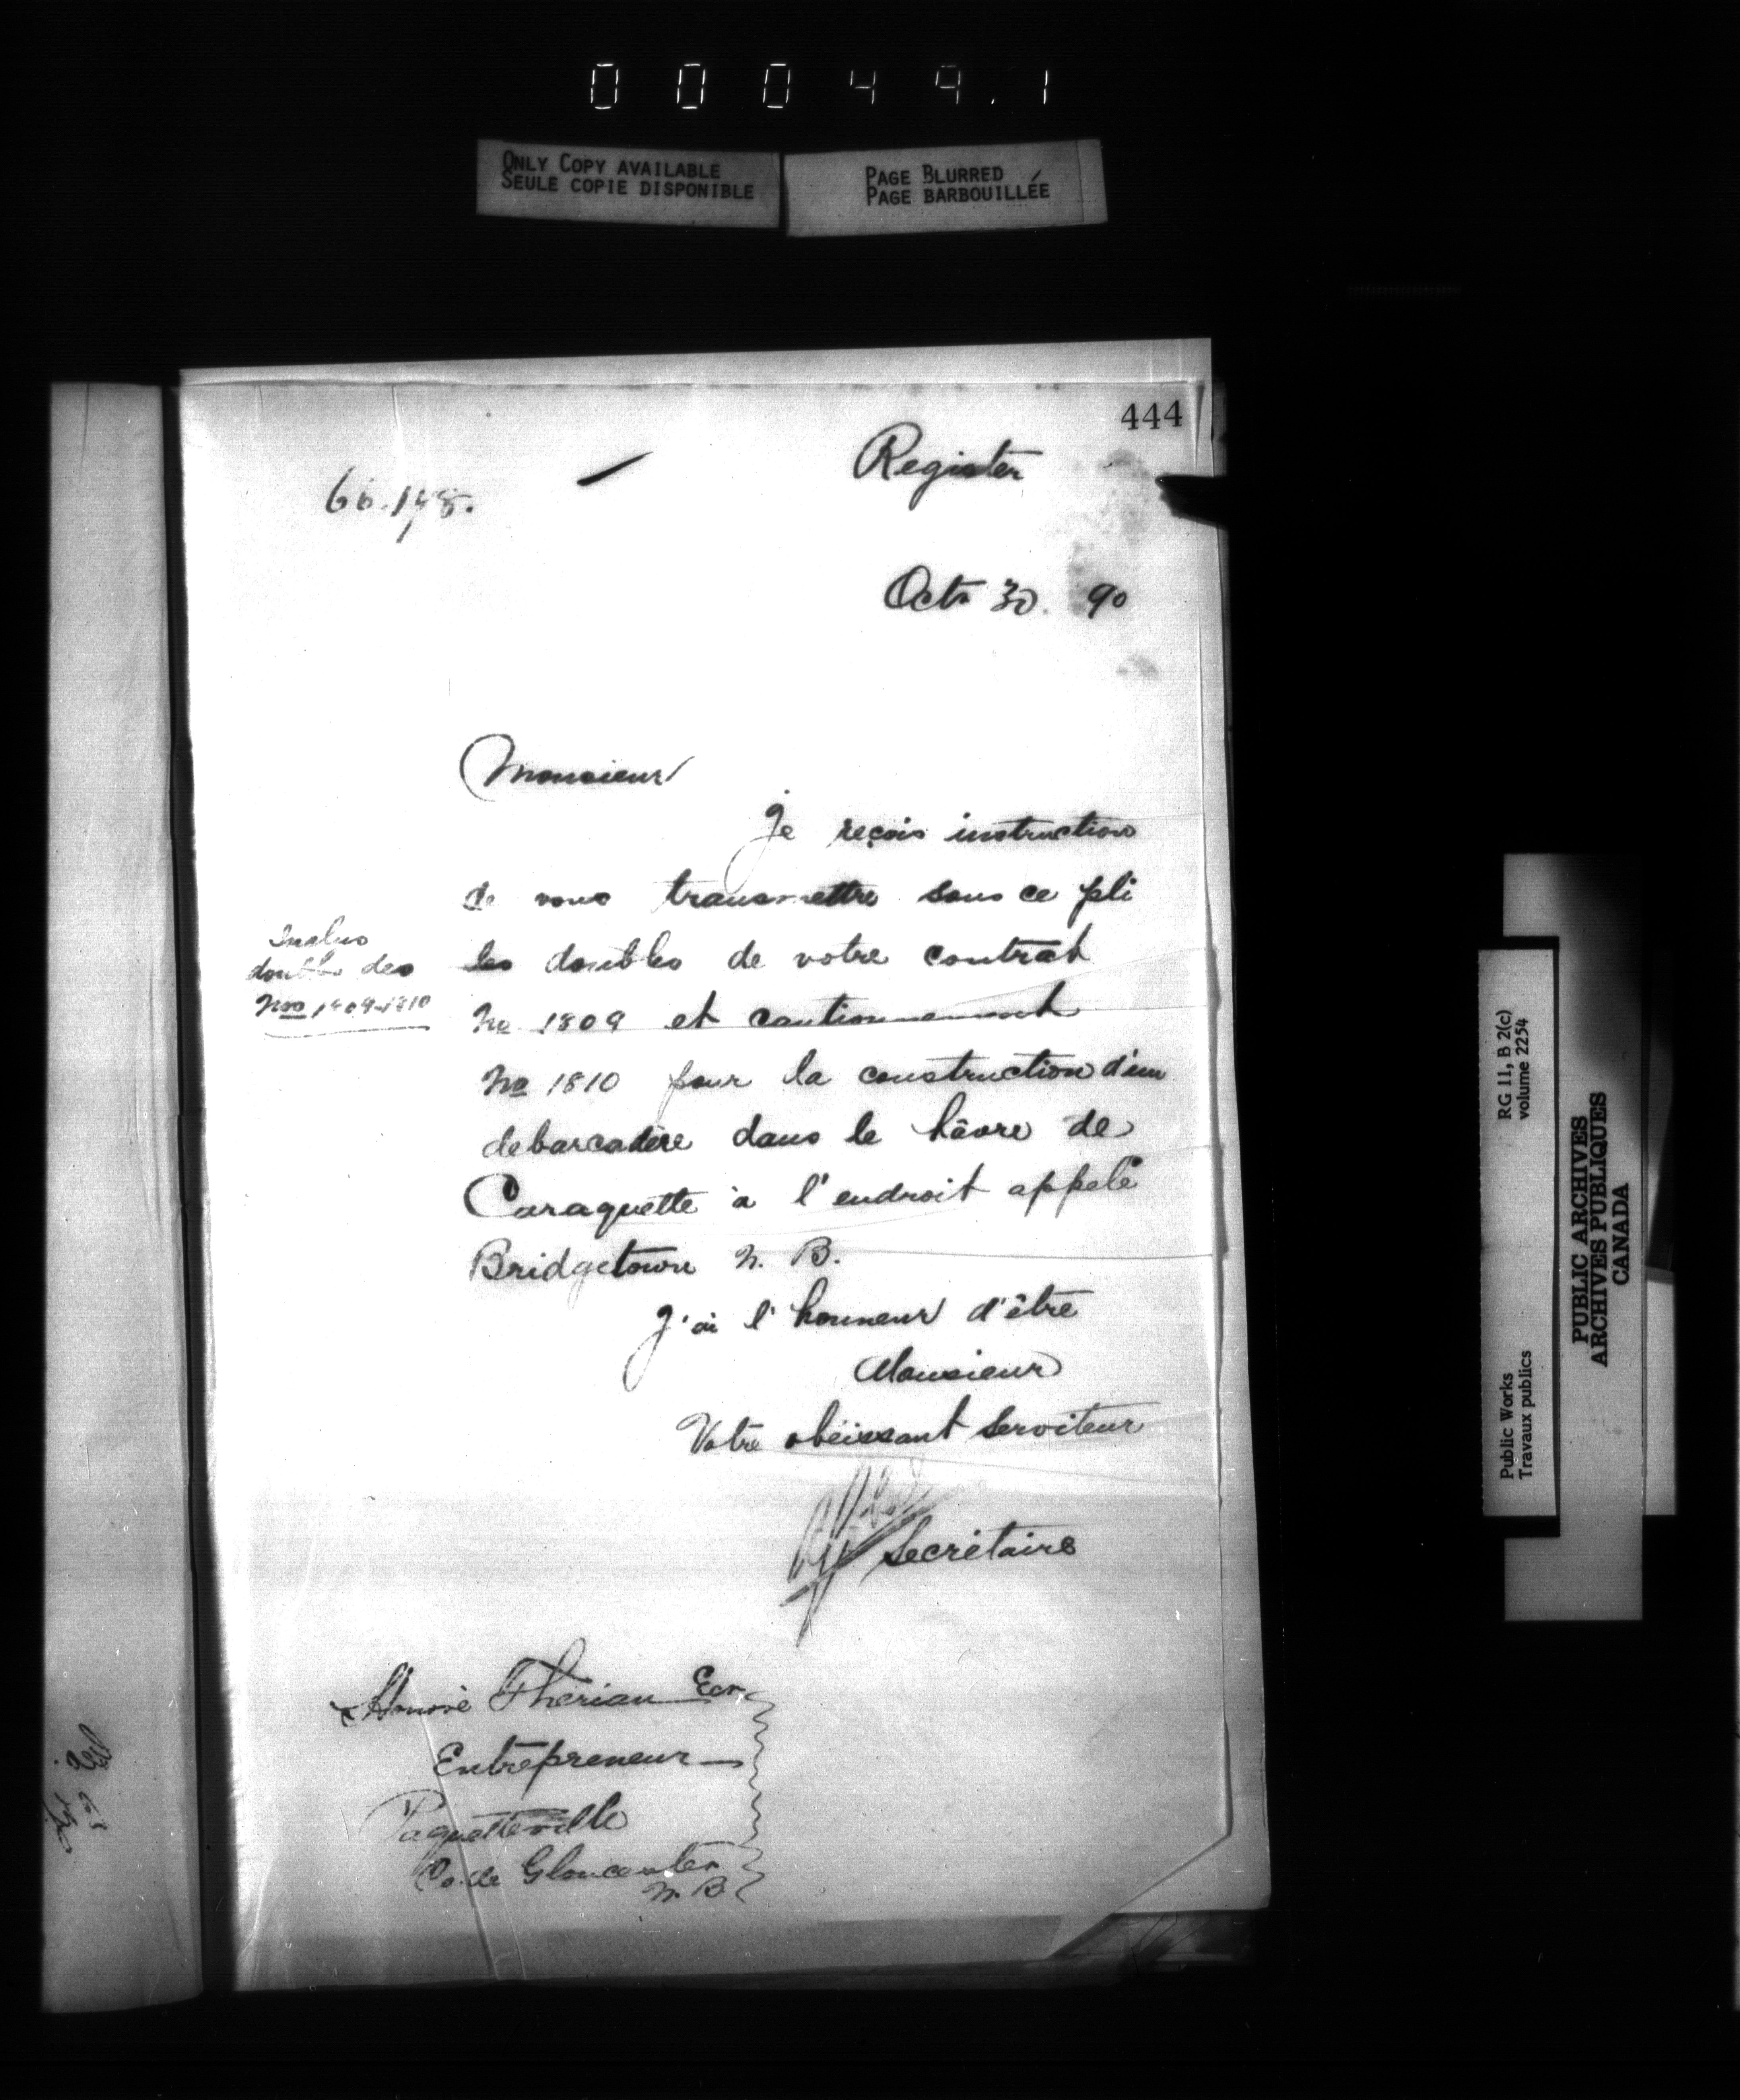 000049.1
ONLY COPY AVAILABLE
SEULE COPIE DISPONIBLE
PAGE BLURRED
PAGE BARBOUILLÉE
444
Register
Octr 30. 90
Monsieur
Je reçois instruction
de vous transmettre sous ce pli
les doubles de votre contrat
No 1809 et cautionnement
No 1810 pour la construction d'un
debarcadère dans le hâvre de
Caraquette à l'endroit appelé
Bridgetown N. B.
Inclus
double des
Nos 1809-1810
J'ai l'honneur d'être
Monsieur
Votre obéissant Serviteur
Secrétaire
Honoré Therian Ecr
Entrepreneur
Paquetteville
Co. de Gloucester
N. B.
RG 11, B 2(c)
volume 2254
Public Works
Travaux publics
PUBLIC ARCHIVES
ARCHIVES PUBLIQUES
CANADA